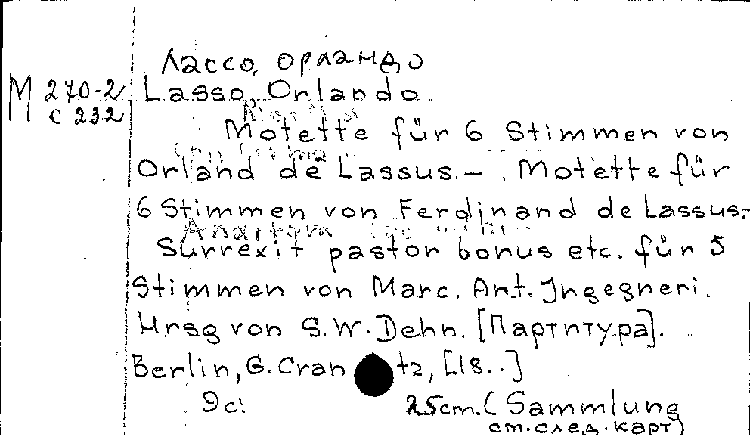 Лассо, Орландо
М 270-2 Lasso, Orlando.
с 232
Motette für 6 Stimmen von
Orland de Lassus. – Motette für
6 Stimmen von Ferdinand de Lassus.-
Surrexit pastor bonus etc. für 5
Stimmen von Marc. Ant. Ingegneri.
Hrsg von S. W. Dehn. [Партитура].
Berlin, G. Cran tz, [18..]
9c. 25cm. (Sammlung
см. след. карт)